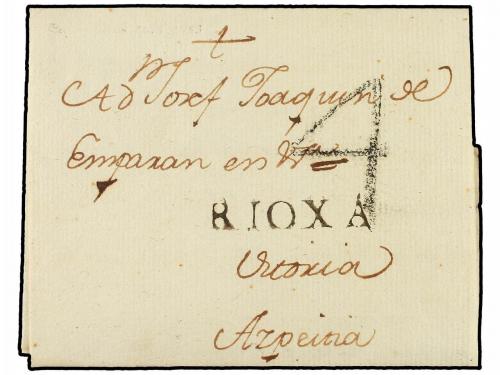 A Dn Josef Joaquin de
Emparan en
4
RIOXA
Vitoria
Azpeitia